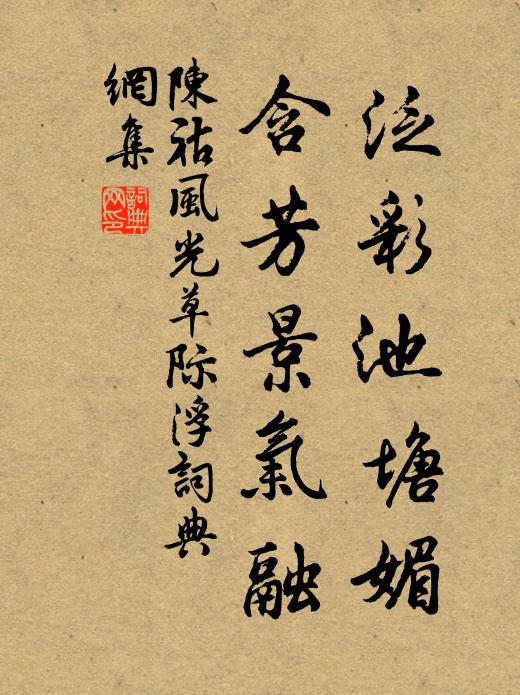 泛彩池塘媚
含芳景氣融
陳祜風光草际浮詞典
網集
詞典
网印